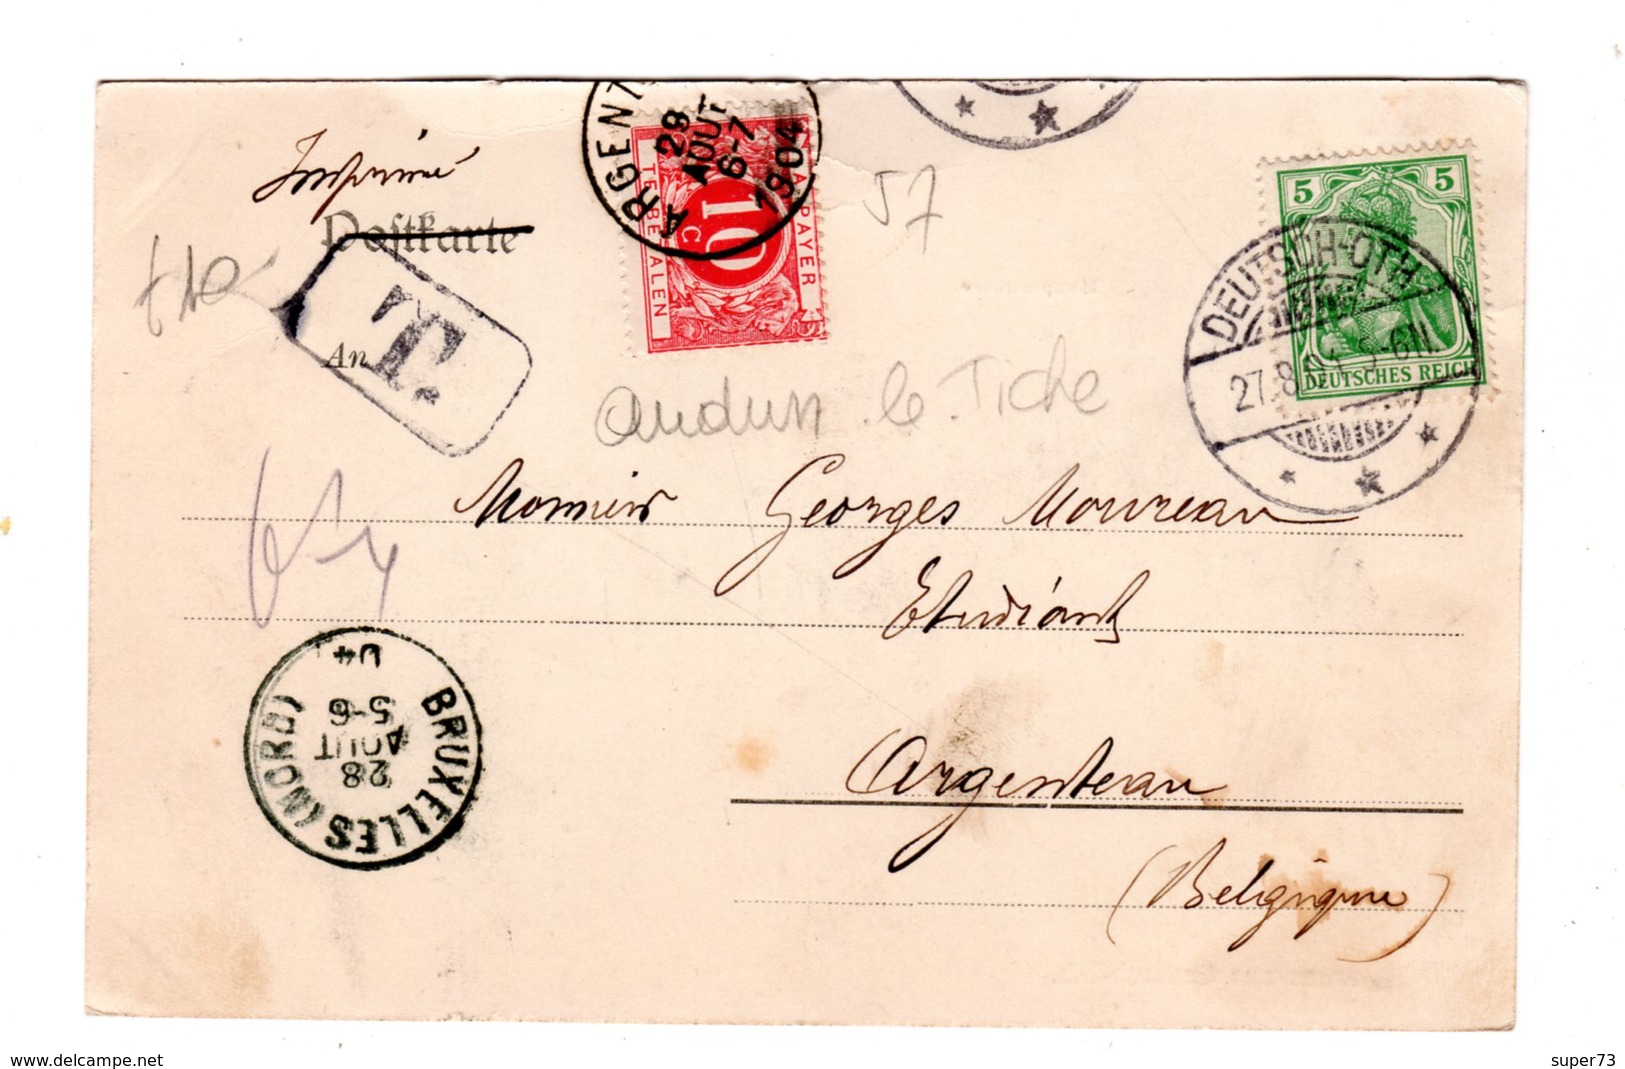 Imprimé
Postkarte
An
T.
ARGENT
29
AOUT
6-7
1904
A PAYER
10
c
TE BETALEN
57
5
5
DEUTSCHES REICH
DEUTSCH-OTH
27.8.04.5-6N
Audun.le.Tiche
Monsieur Georges Moureau
Etudiant
Argenteau
(Belgique)
BRUXELLES (NORD)
28
AOUT
5-6
04
delcampe.net
super73